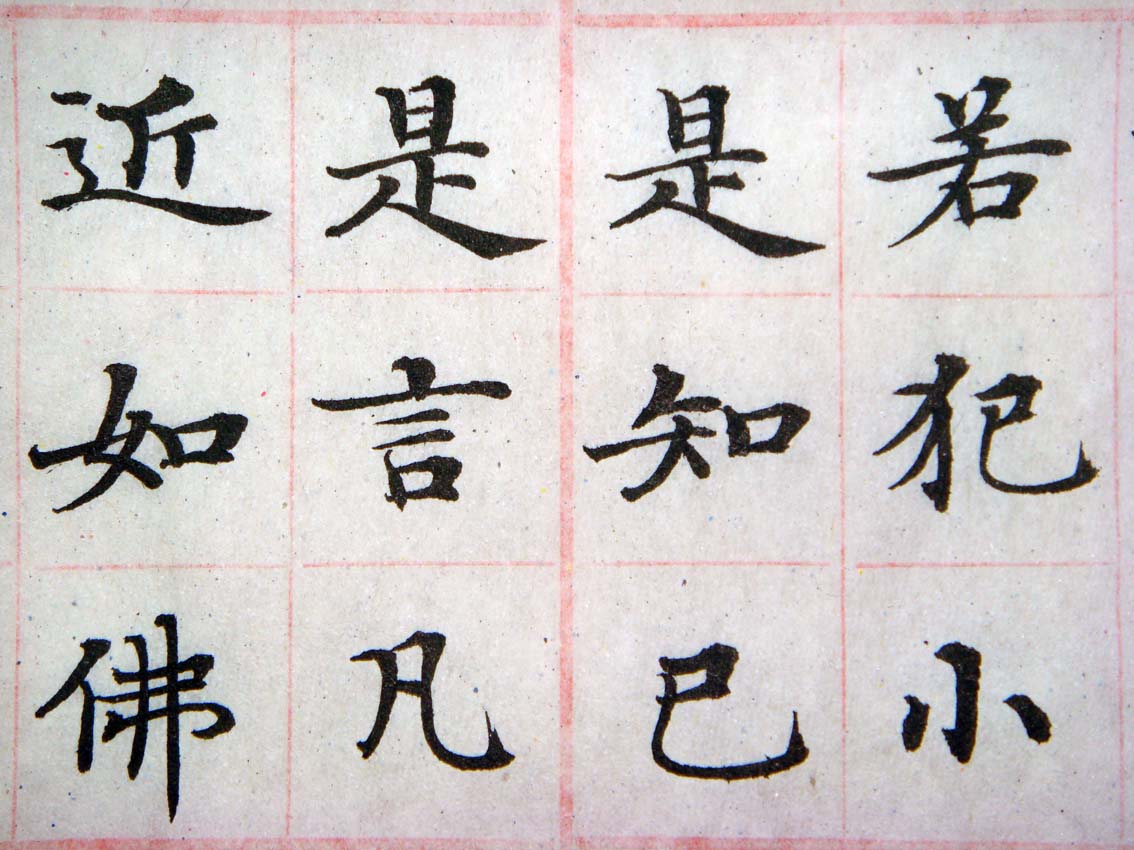 若犯小
是知已
是言凡
近如佛